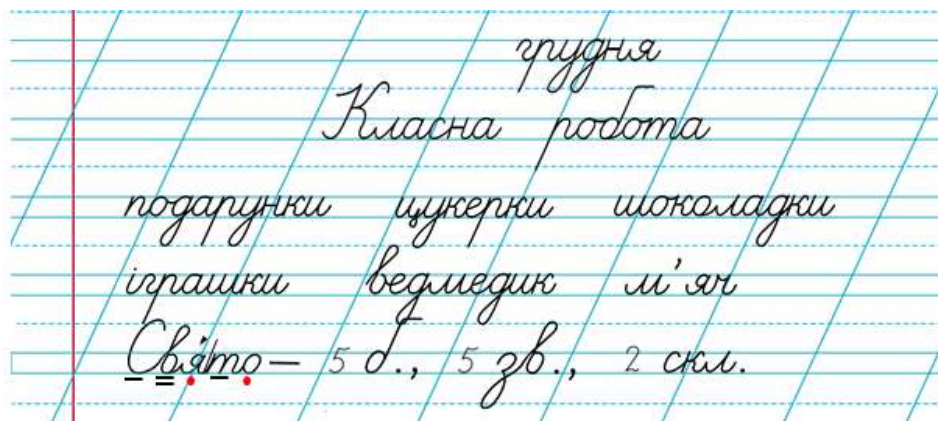 грудня
Класна робота
подарунки цукерки шоколадки
іграшки ведмедик м'яч
Свя́/то – 5 б., 5 зв., 2 скл.